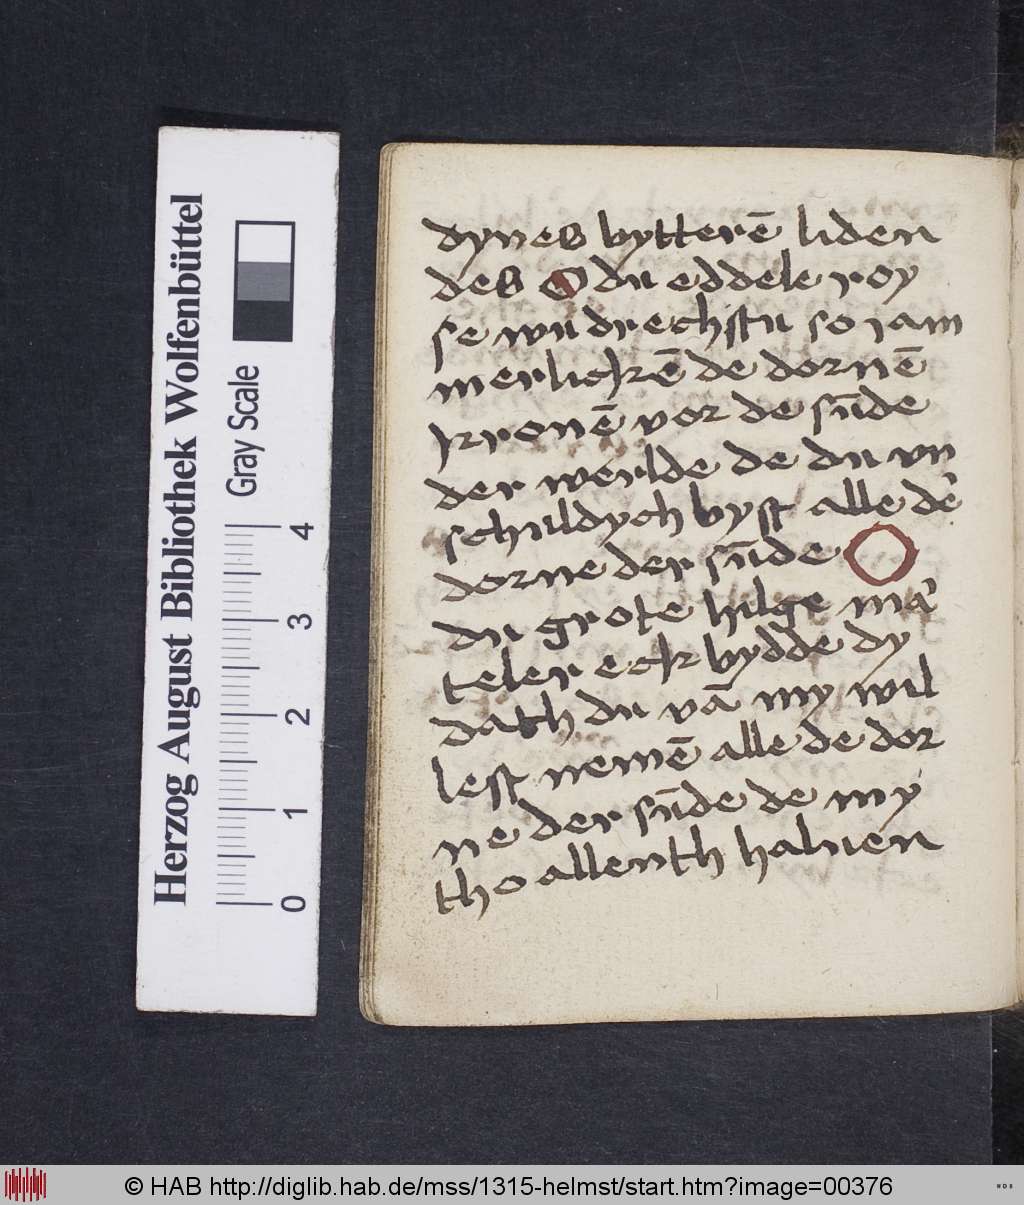 dynes bytterē liden
des O du eddele roy
se wu drechstu so jam
merlickē de dornē
kronē vor de sūde
der werlde de du vn
schuldych byst alle de᷑
dorne der sūde O
du grote hilge ma᷑
teler eck bydde dy
dath du vā my wil
lest nemē alle de dor
ne der sūde de my
tho allenth haluen
Herzog August Bibliothek Wolfenbüttel
Gray Scale
0 1 2 3 4
© HAB http://diglib.hab.de/mss/1315-helmst/start.htm?image=00376